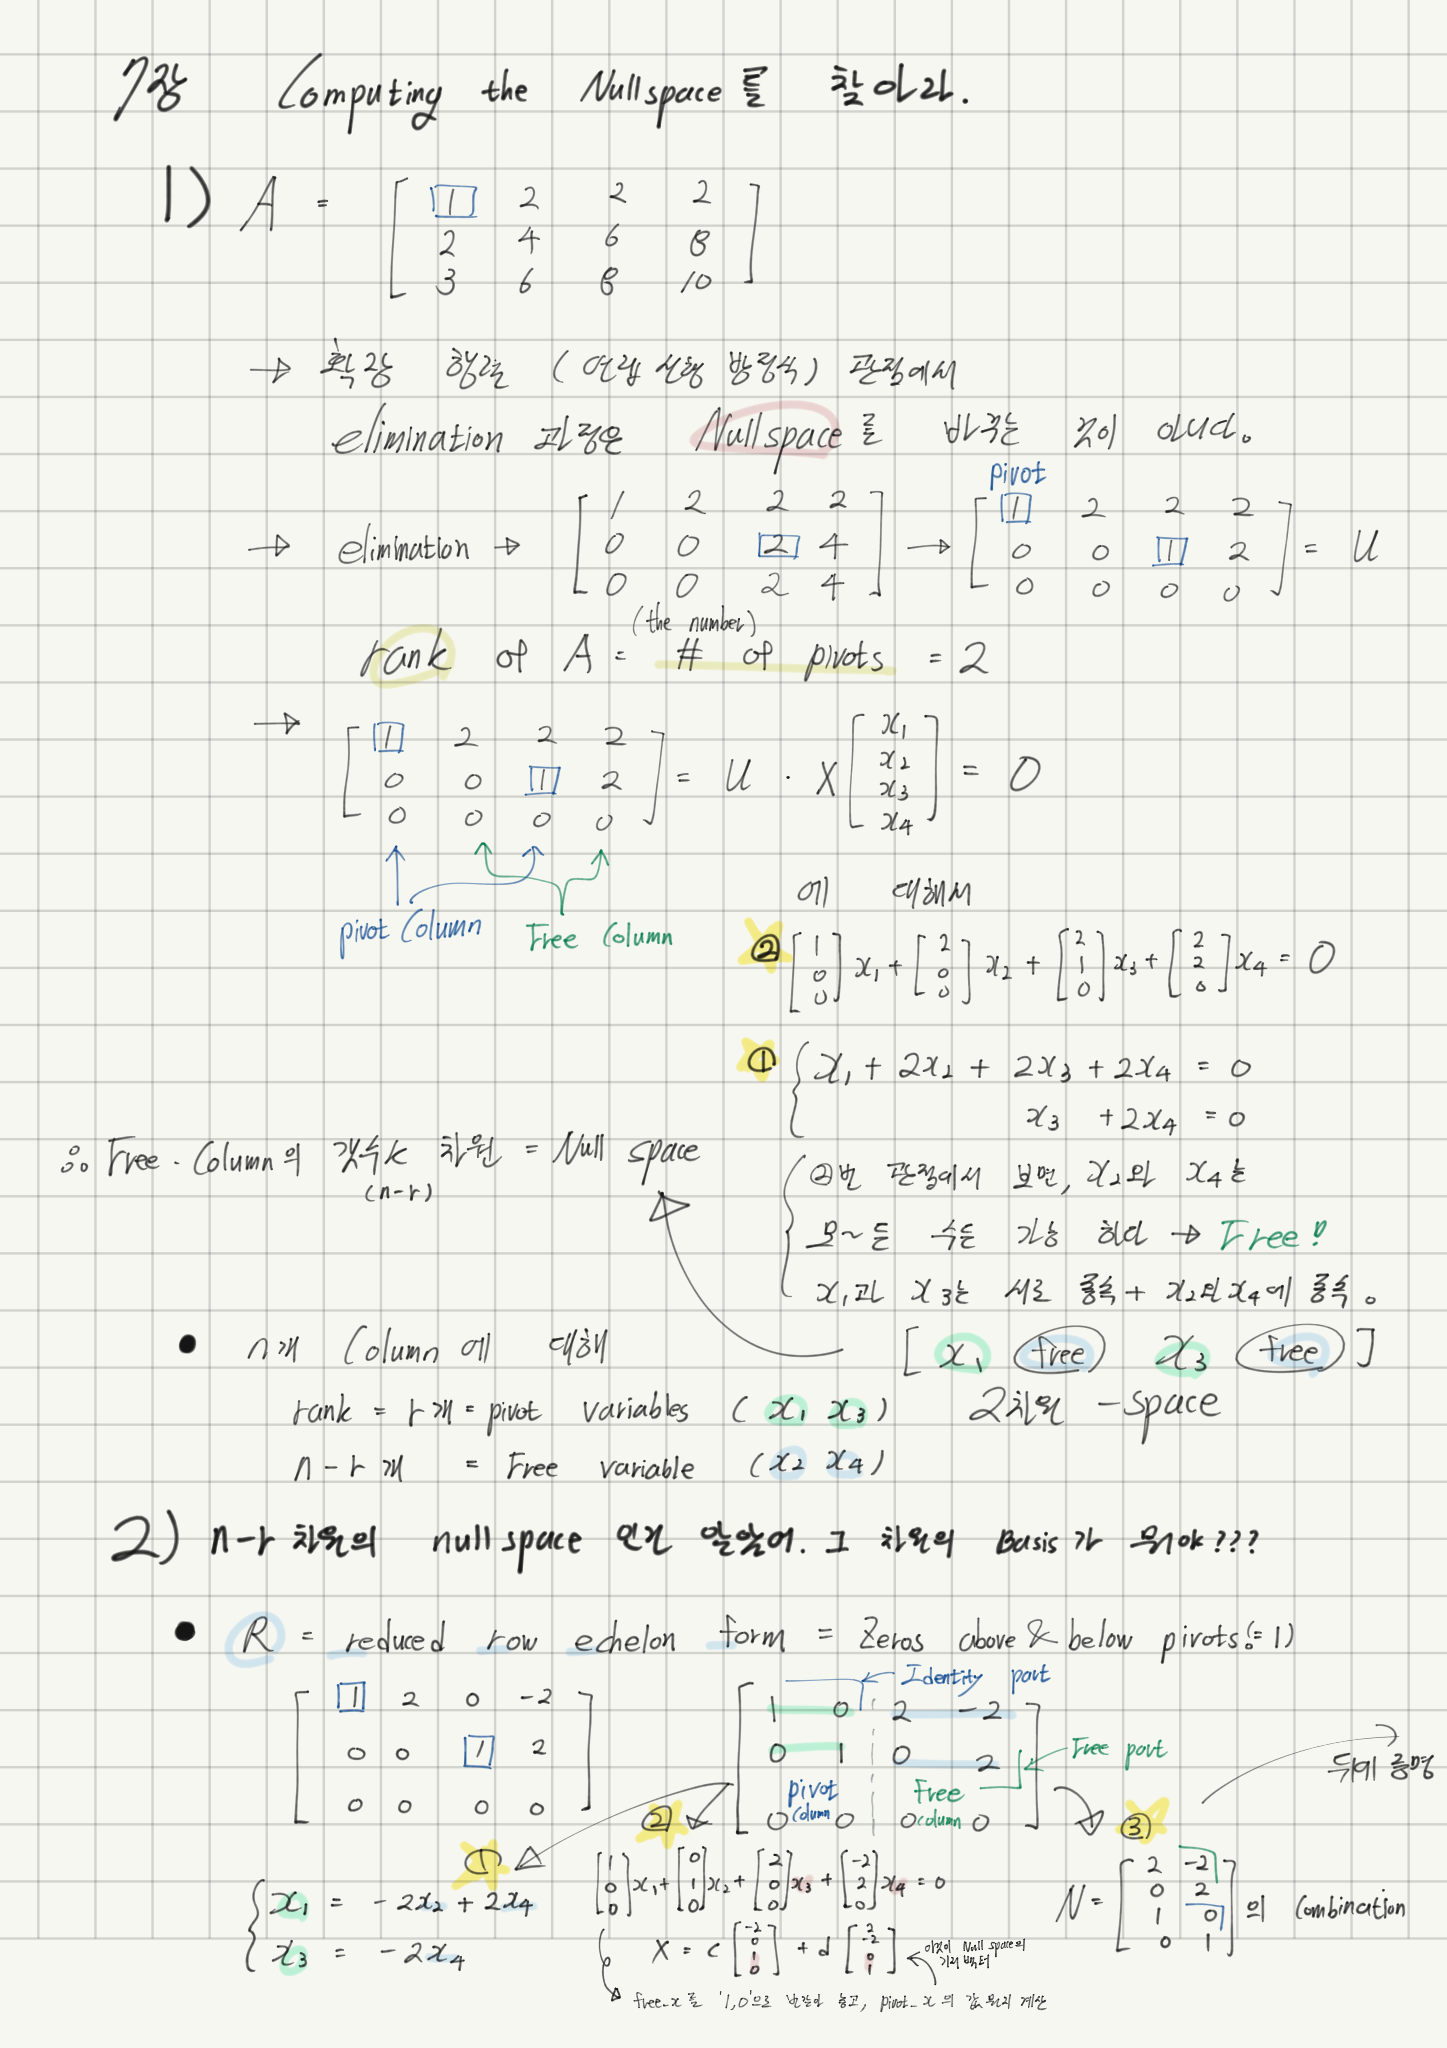 7강 Computing the Nullspace를 찾아라.
1) A = [ 1 2 2 2
2 4 6 8
3 6 8 10 ]
→ 확장 행렬 (연립 선형 방정식) 관점에서
elimination 과정은 Nullspace를 바꾸는 것이 아니다.
pivot
→ elimination → [ 1 2 2 2 → [ 1 2 2 2
0 0 2 4 0 0 1 2 = U
0 0 2 4 ] 0 0 0 0 ]
(the number)
rank of A = # of pivots = 2
→ [ 1 2 2 2
0 0 1 2
0 0 0 0 ] = U · X [ x₁ x₂ x₃ x₄ ] = 0
pivot Column Free Column
에 대해서
② [ 1 0 0 ] x₁ + [ 2 0 0 ] x₂ + [ 2 1 0 ] x₃ + [ 2 2 0 ] x₄ = 0
① { x₁ + 2x₂ + 2x₃ + 2x₄ = 0
x₃ + 2x₄ = 0
∴ Free · Column의 갯수k 차원 = Null space
(n-r)
②번 관점에서 보면, x₂와 x₄는
모~든 수든 가능 하다 → Free!
x₁과 x₃는 서로 종속 + x₂와 x₄에 종속.
[ x₁ free x₃ free ]
2차원 -space
• n개 Column에 대해
rank = r개 = pivot variables ( x₁ x₃ )
n-r개 = Free variable ( x₂ x₄ )
2) n-r 차원의 nullspace 인건 알았어. 그 차원의 Basis가 뭐야???
• R = reduced row echelon form = Zeros above & below pivots(=1)
Identity part
[ 1 2 0 -2
0 0 1 2
0 0 0 0 ]
[ 1 0 2 -2
0 1 0 2
0 0 0 0 ]
Free part
pivot column
Free column
뒤에 증명
① { x₁ = -2x₂ + 2x₄
x₃ = -2x₄
② [ 1 0 0 ] x₁ + [ 0 1 0 ] x₂ + [ 2 0 0 ] x₃ + [ -2 2 0 ] x₄ = 0
X = c [ -2 0 1 0 ] + d [ 2 -2 0 1 ]
이것이 Null space의
기저 벡터
free_x를 '1,0'으로 번갈아 놓고, pivot_x의 값 계산
③ N = [ 2 -2
0 2
1 0
0 1 ] 의 Combination